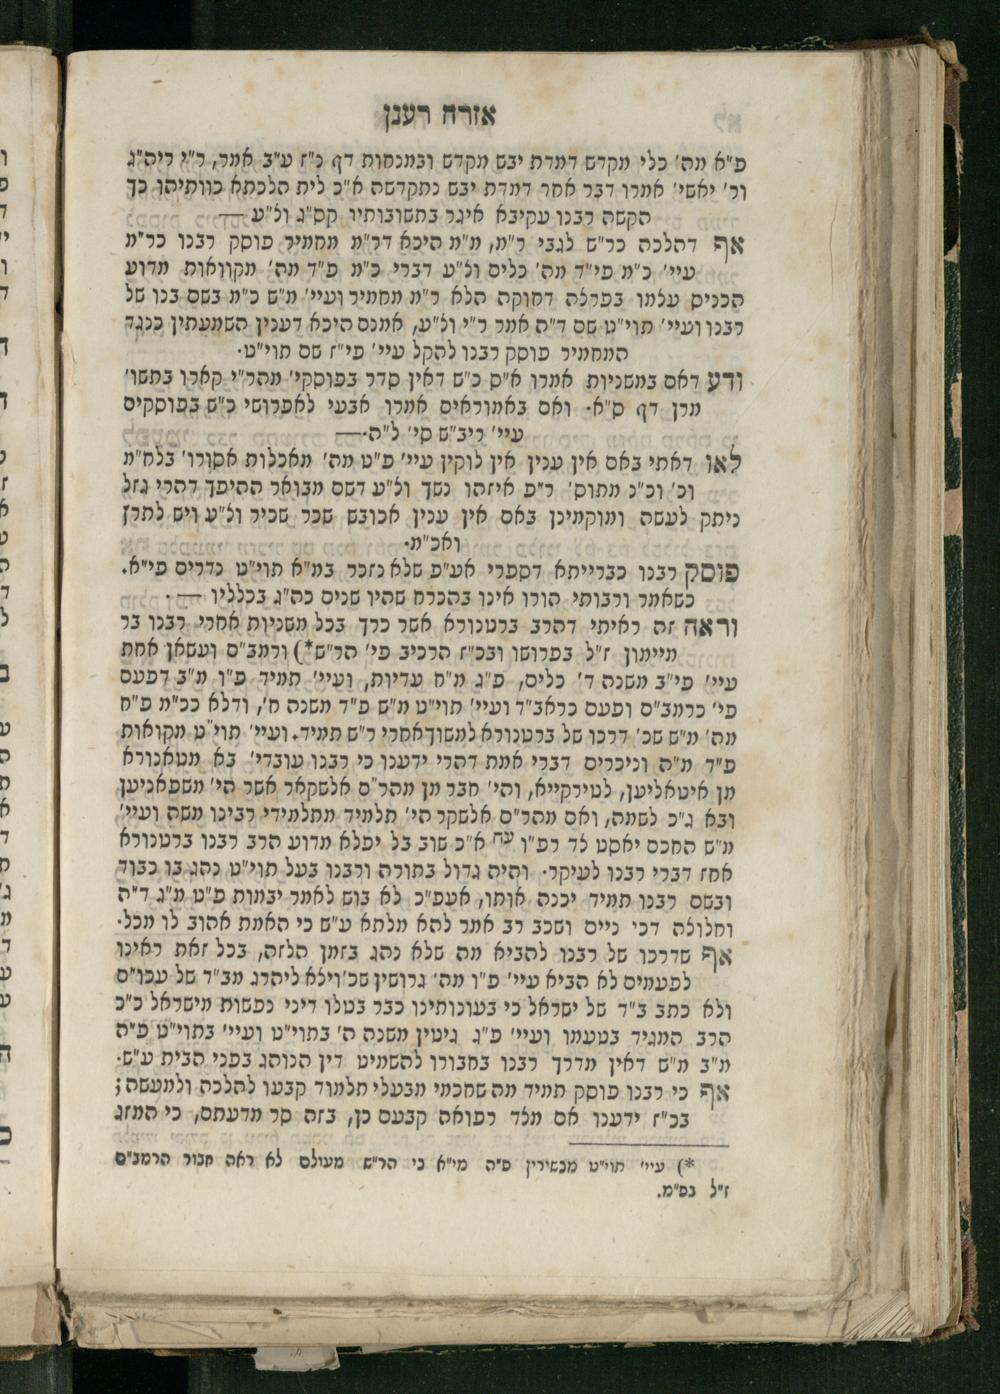 אזרח רענן
פ"א מה' כלי מקדש דמדת יבש מקדש ובמנחות דף כ"ז ע"ב אמר, ר"י ריה"ג
ור' יאשי' אמרו דבר אחר דמדת יבש נתקדשה א"כ לית הלכתא כוותיהו כך
הקשה רבנו עקיבא איגר בתשובותיו קס"ג ול"ע —
אף דהלכה כר"ש לגבי ר"מ, מ"מ היכא דר"מ מחמיר פוסק רבנו כר"מ
עיי' כ"מ פי"ד מה' כלים ול"ע דברי כ"מ פ"ד מה' מקוואות מדוע
הכניס עלמו בפרלה דחוקה הלא ר"מ מחמיר ועיי' מ"ש כ"מ בשם בנו של
רבנו ועיי' תוי"ט שם ד"ה אמר ר"י ול"ע, אמנם היכא דענין השמעתין כנגד
המחמיר פוסק רבנו להקל עיי' פי"ז שם תוי"ט.
ודע דאם במשניות אמרו א"ם כ"ש דאין סדר בפוסקי' מהר"י קארו בתשו'
מרן דף ס"א. ואם באמוראים אמרו אבעי לאפרושי כ"ש בפוסקים
עיי' ריב"ש סי' ל"ה.—
לאו דאתי באם אין ענין אין לוקין עיי' פ"ט מה' מאכלות אסורו' בלח"מ
וכ' וכ"כ מתוס' ר"פ איזהו נשך ול"ע דשם מבואר ההיפך דהרי גזל
ניתק לעשה ומוקמינן באם אין ענין אכובש שכר שכיר ול"ע ויש לתרץ
ואכ"מ.
פוסק רבנו כברייתא דספרי אע"פ שלא נזכר במ"א תוי"ט נדרים פי"א.
כשאמר ורבותי הורו אינו בהכרח שהיו שנים כה"ג בכלליו — .
וראה זה ראיתי דהרב ברטנורא אשר כרך בכל משניות אחרי רבנו בר
מיימון ז"ל בפרושו ובכ"ז הרכיב פי' הר"ש*) ורמב"ם ועשאן אחת
עיי' פי"ב משנה ד' כלים, פ"ג מ"ח עדיות, ועיי' תמיד פ"ו מ"ב דפעם
פי' כרמב"ם ופעם כראב"ד ועיי' תוי"ט מ"ש פ"ד משנה ח', ודלא ככ"מ פ"ח
מה' מ"ש שכ' דרכו של ברטנורא למשוך אחרי ר"ש תמיד. ועיי' תוי"ט מקואות
פ"ד מ"ה וניכרים דברי אמת דהרי ידענו כי רבנו עובדי' בא מטאנורא
מן איטאליען, לטירקייא, והי' חבר מן מהר"ם אלשקאר אשר הי' משפאניען
ובא ג"כ לשמה, ואם מהר"ם אלשקר הי' תלמיד מתלמידי רבינו משה ועיי'
מ"ש החכם יאסט לד רפ"ו עח א"כ שוב בל יפלא מדוע הרב רבנו ברטנורא
אחז דברי רבנו לעיקר. והיה גדול בתורה ורבנו בעל תוי"ט נהג בו כבוד
ובשם רבנו תמיד יכנה אותו, אעפ"כ לא בוש לאמר יבמות פ"ט מ"ג ד"ה
וחלולה דכי ניים ושכב רב אמר להא מלתא ע"ש כי האמת אהוב לו מכל.
אף שדרכו של רבנו להביא מה שלא נהג בזמן הלזה, בכל זאת ראינו
לפעמים לא הביא עיי' פ"ו מה' גרושין שכ' וילא ליהרג מב"ד של עכו"ם
ולא כתב ב"ד של ישראל כי בעונותינו כבר בטלו דיני נפשות מישראל כ"כ
הרב המגיד בטעמו ועיי' פ"ג גיטין משנה ה' בתוי"ט ועיי' בתוי"ט פ"ה
מ"ב מ"ש דאין מדרך רבנו בחבורו להשמיט דין הנוהג בפני הבית ע"ש.
אף כי רבנו פוסק תמיד מה שחכמי מבעלי תלמוד קבעו להלכה ולמעשה;
בכ"ז ידענו אם מלד רפואה קבעם כן, בזה סר מדעתם, כי המזג
*) עיי' תוי"ט מכשירין פ"ה מי"א כי הר"ש מעולם לא ראה חבור הרמב"ם
ז"ל בפ"מ.